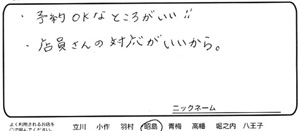 ・予約OKなところがいい!!
・店員さんの対応がいいから。
ニックネーム
よく利用されるお店を
○で囲んでください。
立川 小作 羽村 昭島 青梅 高幡 堀之内 八王子